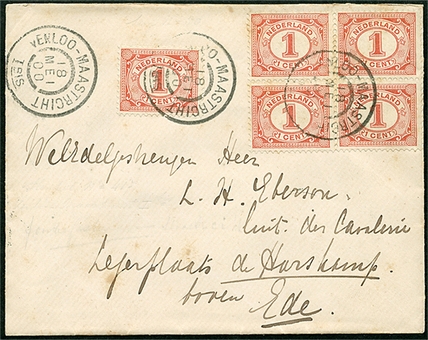 VENLOO-MAASTRICHT
18
MEI
00
NEDERLAND
1
1 CENT
NEDERLAND
1
1 CENT
NEDERLAND
1
1 CENT
NEDERLAND
1
1 CENT
NEDERLAND
1
1 CENT
Heer
L. H. Eberson.
Luit. der Cavalerie
Legerplaats de Harskamp.
boven
Ede.